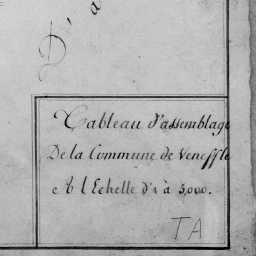 D' a
Tableau d'assemblage
De la Commune de Veneffle
A l'Echelle d'1 à 5,000.
TA